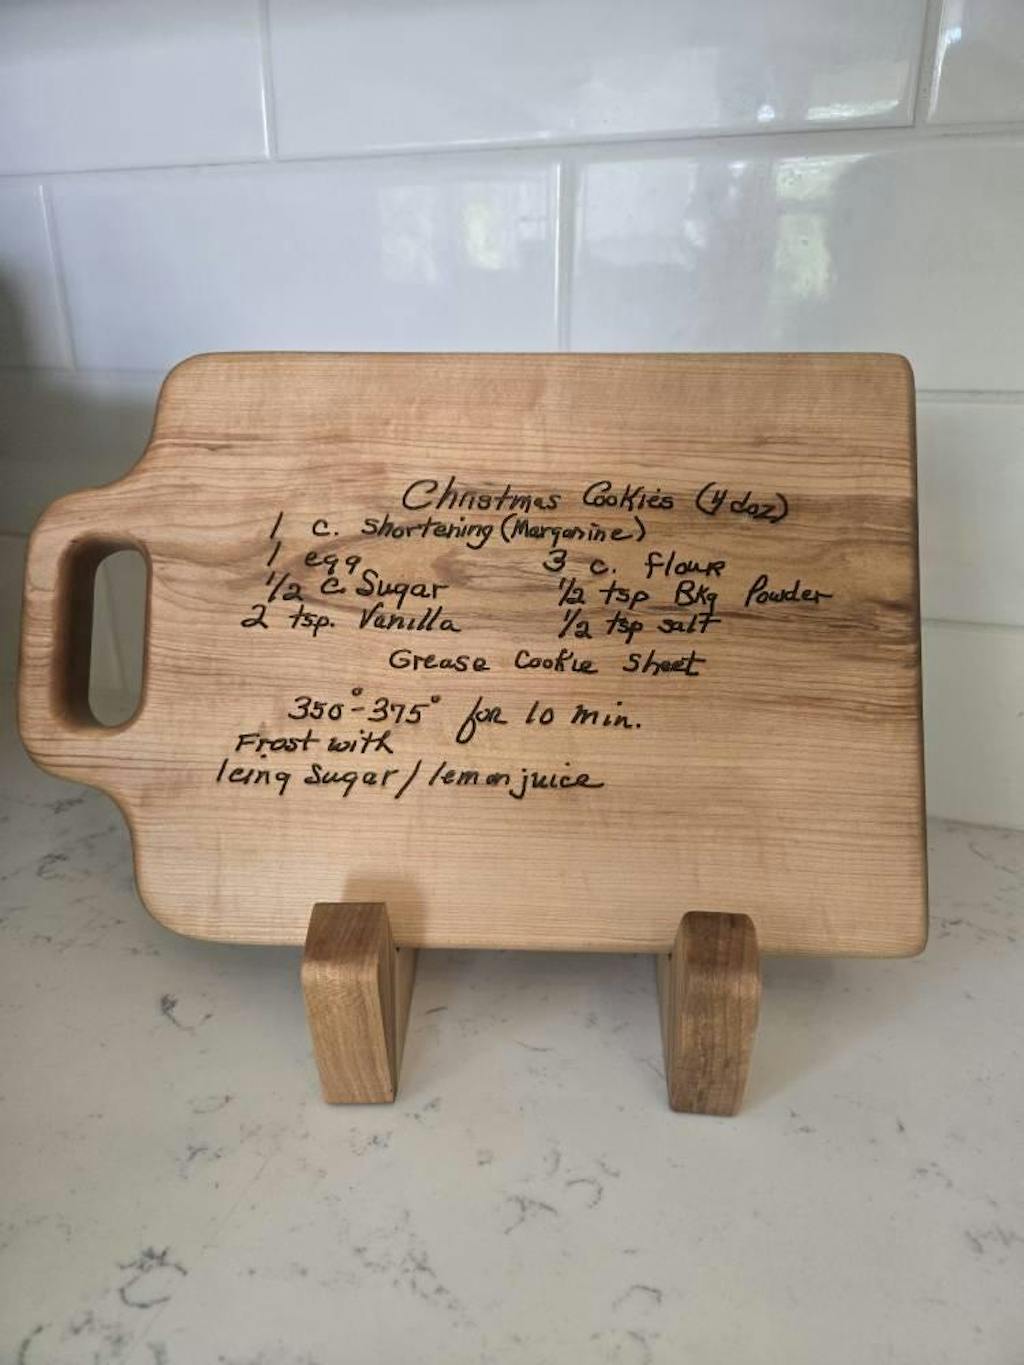 Christmas Cookies (4 doz)
1 c. shortening (Margarine)
1 egg 3 c. flour
1/2 c Sugar 1/2 tsp Bkg Powder
2 tsp. Vanilla 1/2 tsp salt
Grease Cookie Sheet
350°-375° for 10 min.
Frost with
Icing Sugar/lemon juice